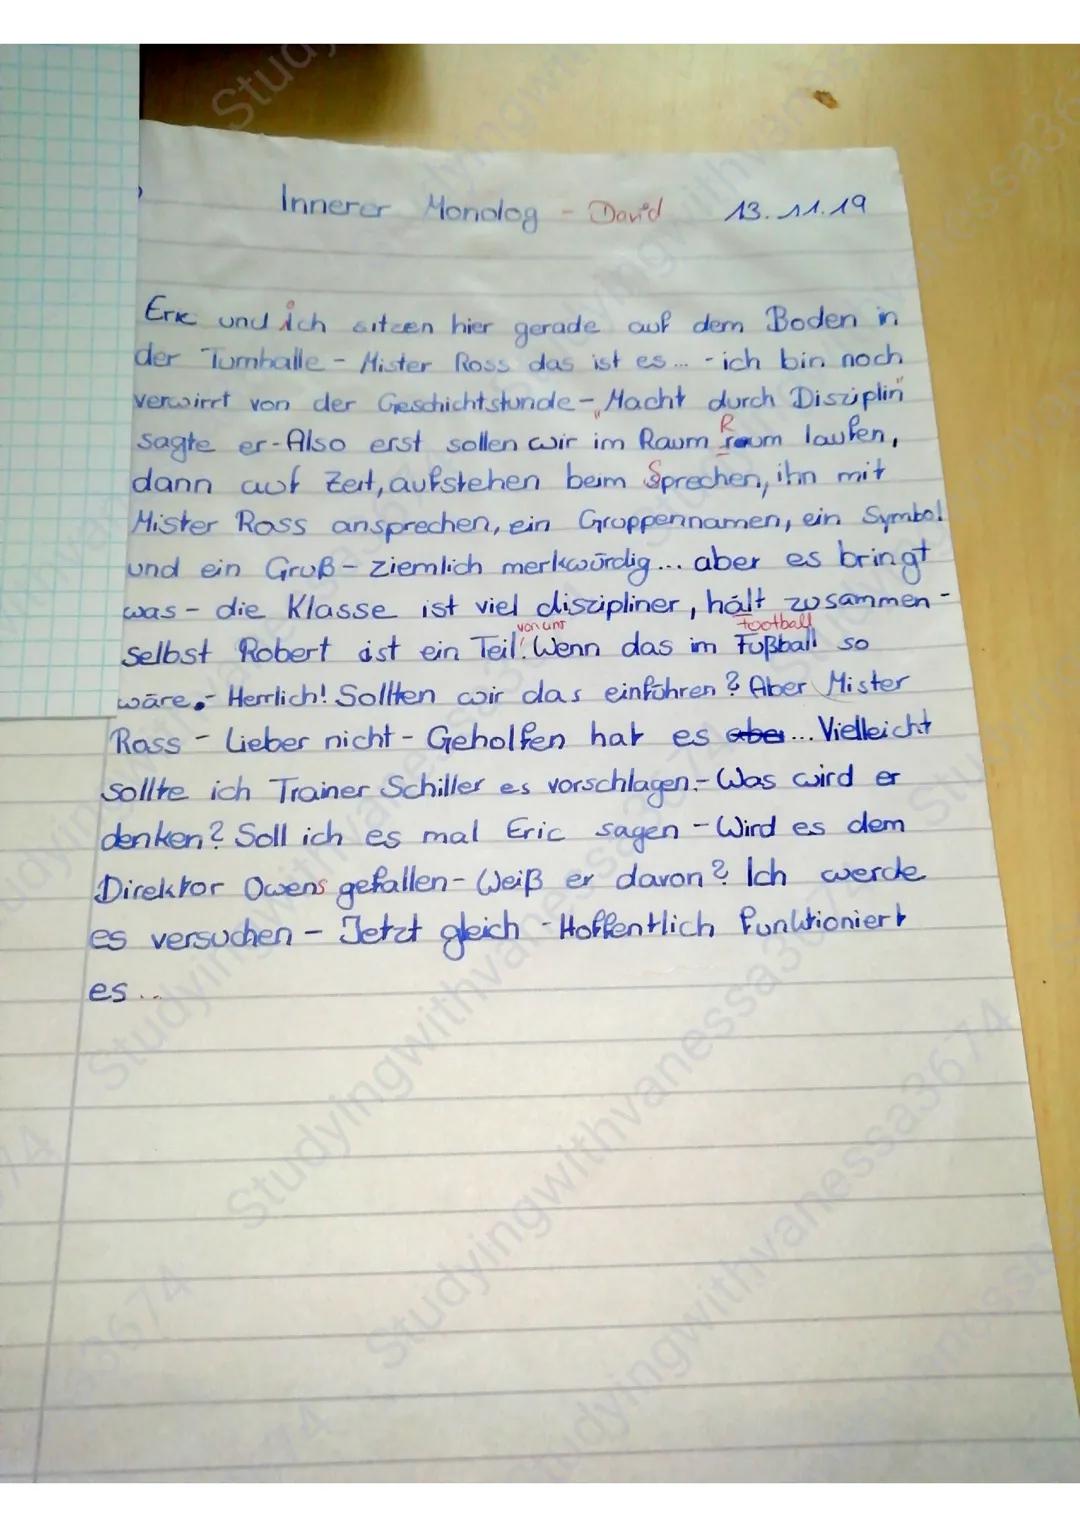 Innerer Monolog - David 13.11.19
Eric und ich sitzen hier gerade auf dem Boden in
der Turnhalle - Mister Ross das ist es... - ich bin noch
verwirrt von der Geschichtstunde - "Macht durch Disziplin"
sagte er - Also erst sollen wir im Raum raum laufen,
R
dann auf Zeit, aufstehen beim Sprechen, ihn mit
Mister Ross ansprechen, ein Gruppennamen, ein Symbol
und ein Gruß - ziemlich merkwürdig... aber es bringt
was - die Klasse ist viel discipliner, hält zusammen -
von uns football
selbst Robert ist ein Teil! Wenn das im Fußball so
wäre. - Herrlich! Sollten wir das einführen? Aber Mister
Ross - Lieber nicht - Geholfen hat es aber... Vielleicht
sollte ich Trainer Schiller es vorschlagen. - Was wird er
denken? Soll ich es mal Eric sagen - Wird es dem
Direktor Owens gefallen - Weiß er davon? Ich werde
es versuchen - Jetzt gleich - Hoffentlich funktioniert
es...
Studyingwithvanessa3674